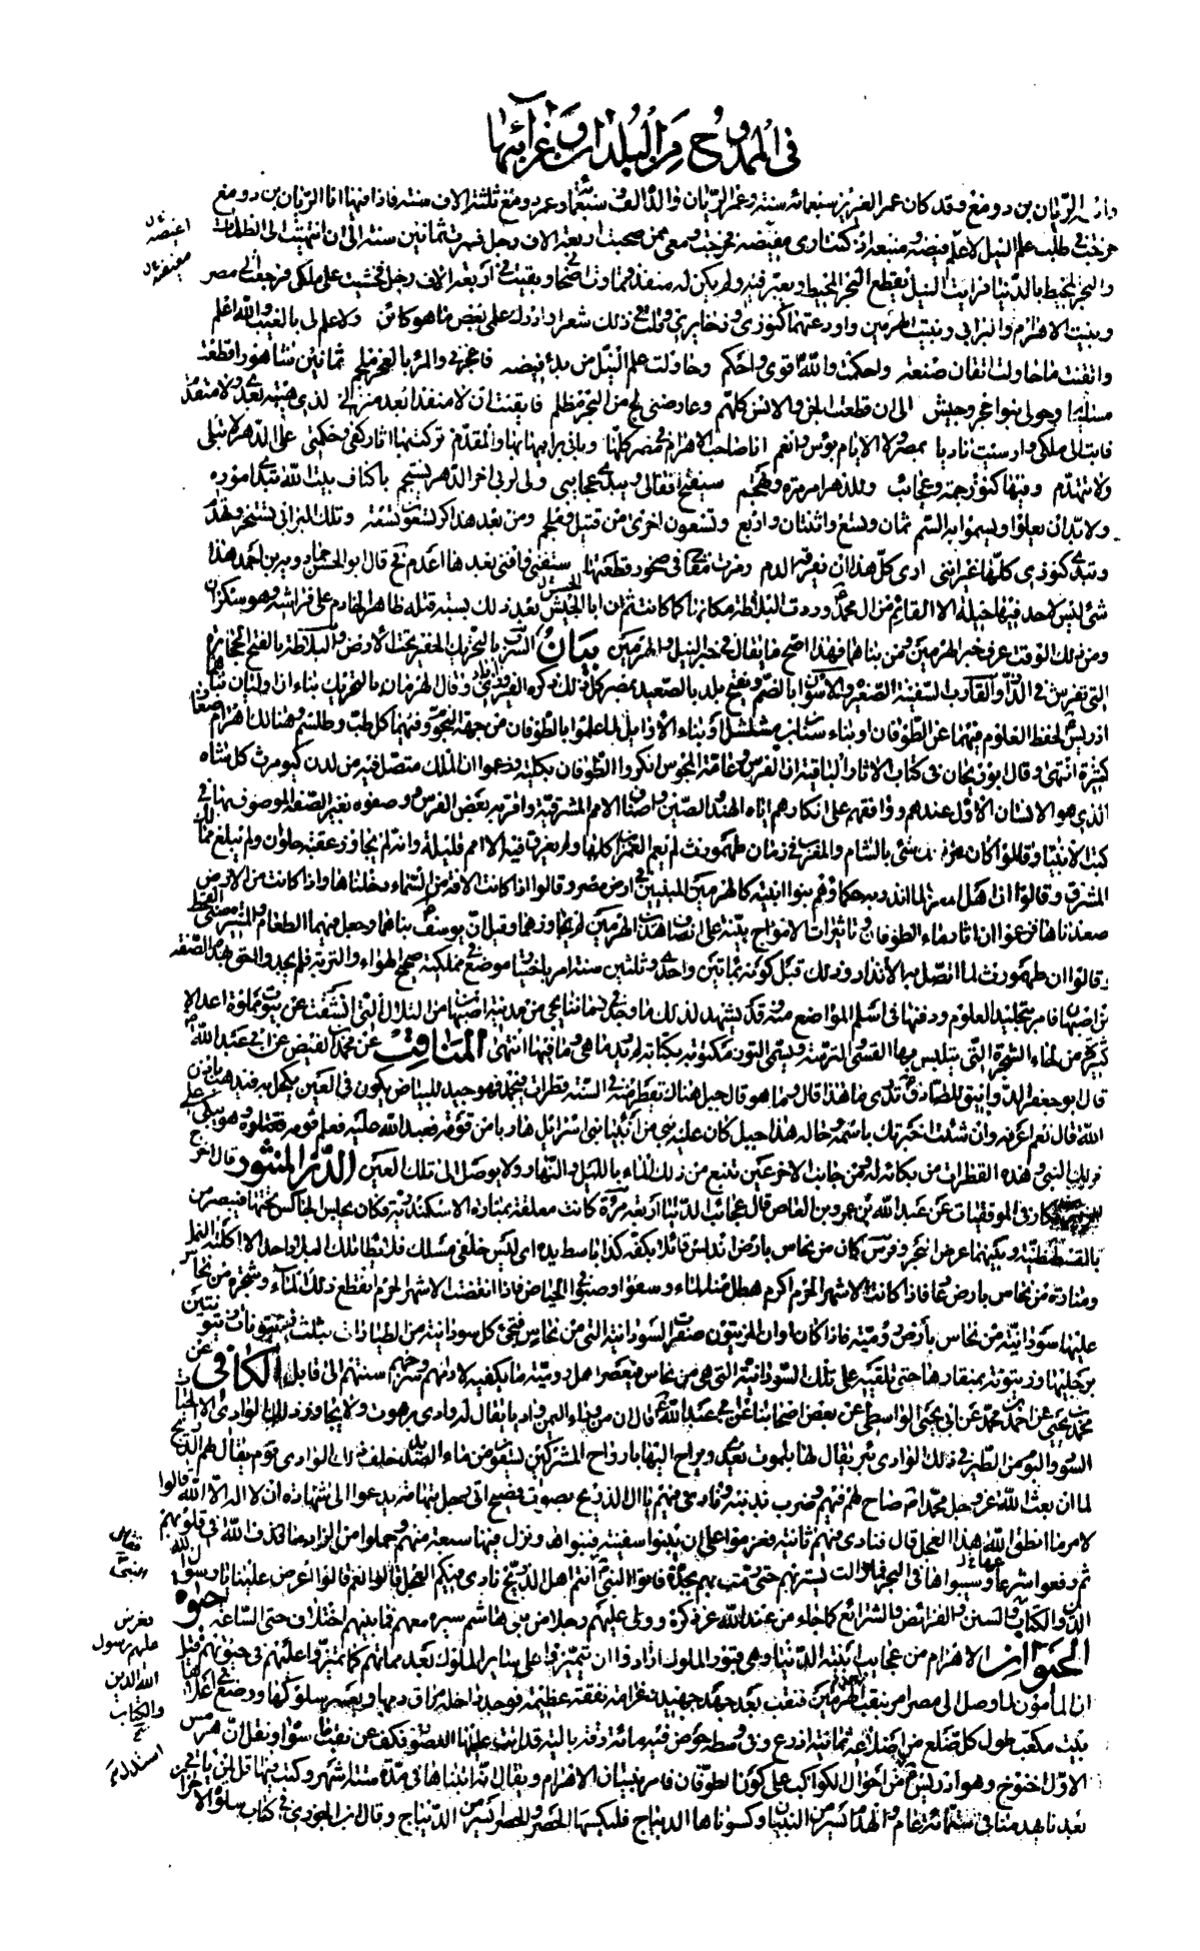 في الممدوح من البلدان وغرائبها
الريان بن دومغ وقد كان عمر العزيز سبعمائة سنة وعمر الريان والده ألف وسبعمائة وعمر دومغ ثلثة آلاف سنة فإذا فيها أنا الريان بن دومغ
خرجت في طلب علم النيل لأعلم فيضه ومنبعه إذ كنت أرى مفيضه فخرجت ومعي ممن صحبت أربعة آلاف رجل فسرت ثمانين سنة إلى أن انتهيت إلى الظلمات
والبحر المحيط بالدنيا فرأيت النيل يقطع البحر المحيط ويعبر فيه ولم يكن له منفذ وتماوت أصحابي وبقيت في أربعة آلاف رجل فخشيت على ملكي فرجعت إلى مصر
وبنيت الأهرام والبرابي وبنيت الهرمين وأودعتهما كنوزي وذخايري وقلت في ذلك شعرا وأدرك علمي بعض ما هو كائن ولا علم لي بالغيب والله أعلم
وأتقنت ما حاولت إتقان صنعه وأحكمته والله أقوى وأحكم وحاولت علم النيل من بدء فيضه فأعجزني والمرء بالعجز ملجم ثمانين شاهورا قطعت
مسايحا وحولي بنو حجر وجيش إلى أن قطعت الجن والإنس كلهم وعارضني لج من البحر مظلم فأيقنت أن لا منفذا بعد منزلي لذي هيبة بعدي ولا متقدم
فأبت إلى ملكي وأرسيت ثاويا بمصر وللأيام بؤس وأنعم أنا صاحب الأهرام في مصر كلها وباني برابيها بها والمقدم تركت بها آثار كفي وحكمتي على الدهر لا تبلى
ولا تتهدم وفيها كنوز جمة وعجائب وللدهر أمر مرة وتهجم سيفتح أقفالي ويبدي عجايبي ولي لربي آخر الدهر ينجم بأكناف بيت الله تبدو أموره
ولا بد أن يعلو ويسمو به السم ثمان وتسع واثنتان وأربع وتسعون أخرى من قتيل وملجم ومن بعد هذا كر تسعون تسعة وتلك البرابي تستخر وتهدم
وتبدى كنوزي كلها غير أنني أرى كل هذا أن يفرقه الدم رمزت مقالي في صخور قطعتها ستفنى وأفنى بعدها ثم أعدم قال أبو الجيش خمارويه بن أحمد هذا
شئ ليس لأحد فيه حيلة إلا القائم من آل محمد ع وردت البلاطة مكانها كما كانت ثم إن أبا الجيش بعد ذلك بسنة قتله طاهر الخادم على فراشه وهو سكران
ومن ذلك الوقت عرف خبر الهرمين ومن بناهما فهذا أصح ما يقال في خبر النيل والهرمين بيان السرب بالتحريك الحفير تحت الأرض والبلاطة بالفتح الحجارة
التي تفرش في الدار والقارب السفينة الصغيرة والأسوان بالضم ويفتح بلد بالصعيد بمصر كل ذلك ذكره الفيروزآبادي وقال الهرمان بالتحريك بناءان أوليان بناهما
إدريس لحفظ العلوم فيهما عن الطوفان أو بناء سنان بن مشلشل أو بناء الأوايل لما علموا بالطوفان من جهة النجوم وفيهما كل طب وطلسم وهنالك أهرام صغار
كثيرة انتهى وقال أبو ريحان في كتاب الآثار الباقية إن الفرس وعامة المجوس أنكروا الطوفان بكليته وزعموا أن الملك متصل فيهم من لدن كيومرث كل شاه
الذي هو الإنسان الأول عندهم ووافقهم على إنكارهم إياه الهند والصين وأصناف الأمم المشرقية وأقر به بعض الفرس ووصفوه بغير الصفة الموصوف بها في
كتب الأنبياء وقالوا كان من ذلك شئ بالشام والمغرب في زمان طهمورث لم يعم العمران كلها ولم يغرق فيه إلا أمم قليلة وأنه لم يجاوز عقبة حلوان ولم يبلغ ممالك
المشرق وقالوا إن أهل المغرب لما أنذر به حكماؤهم بنوا أبنية كالهرمين المبنيين في أرض مصر وقالوا إذا كانت الآفة من السماء دخلناها وإذا كانت من الأرض
صعدناها فزعموا أن آثار ماء الطوفان وتأثيرات الأمواج بينة على أنصاف هذين الهرمين لم يجاوزهما وقيل إن يوسف ع بناهما وجعل فيهما الطعام والميرة لسني القحط
وقالوا إن طهمورث لما اتصل به الإنذار وذلك قبل كونه بمائتين وإحدى وثلثين سنة أمر باختيار موضع في مملكته صحيح الهواء والتربة فلم يجدوا أحق بهذه الصفة
من إصبهان فأمر بتجليد العلوم ودفنها في أسلم المواضع منه وقد يشهد لذلك ما وجد في زماننا بجي من مدينة إصبهان من التلال التي انشقت عن بيوت مملوءة أعدالا
كثيرة من لحاء الشجرة التي يتلبس بها القسي والترسة ويسمى التوز مكتوبة بكتابة لم يدر ما هي وما فيها انتهى المناقب عن محمد بن الفيض عن أبي عبد الله ع
قال أبو جعفر الدوانيقي للصادق ع تدري ما هذا قال وما هو قال جبل هناك يقطر منه في السنة قطرات فيجمد فهو جيد للبياض يكون في العين يكحل به فيذهب بإذن
الله قال نعم أعرفه وإن شئت أخبرتك باسمه وحاله هذا جبل كان عليه نبي من أنبياء بني إسرائيل هاربا من قومه فعبد الله عليه فعلم قومه فقتلوه وهو يبكي على
ذلك النبي وهذه القطرات من بكائه له ومن جانب الآخر عين تنبع من ذلك الماء بالليل والنهار ولا يوصل إلى تلك العين الدر المنثور قال أخرج
بكار في الموفقيات عن عبد الله بن عمرو بن العاص قال عجائب الدنيا أربعة مرآة كانت معلقة بمنارة الإسكندرية فكان يجلس الجالس تحتها فيبصر من
بالقسطنطنية وبينهما عرض البحر وفرس كان من نحاس بأرض أندلس قائلا بكفه كذا باسط يده أي ليس خلفي مسلك فلا يطأ تلك البلاد أحد إلا أكلته النمل
ومنارة من نحاس بأرض عاد فإذا كانت الأشهر الحرم هطل منها الماء وسقوا وصبوا في الحياض فإذا انقضت الأشهر الحرم انقطع ذلك الماء وشجرة من نحاس
عليها سودانية من نحاس بأرض رومية فإذا كان أوان الزيتون صفرت السودانية التي من نحاس فتجئ كل سودانية من الطيارات بثلث زيتونات زيتونتين
برجليها وزيتونة بمنقارها حتى تلقيه على تلك السودانية التي هي من نحاس فيعصر أهل رومية ما يكفيهم لإدامهم وسرجهم سنتهم إلى قابل الكافي عن
محمد بن يحيى عن أحمد بن محمد عن أبي يحيى الواسطي عن بعض أصحابنا عن أبي عبد الله ع قال إن من وراء اليمن واد يقال له وادي برهوت ولا يجاوز ذلك الوادي إلا الحيات
السود والبوم من الطير في ذلك الوادي بئر يقال لها بلهوت يغدى ويراح إليها بأرواح المشركين يسقون من ماء الصديد خلف ذلك الوادي قوم يقال لهم الذريح
لما أن بعث الله عز وجل محمدا ص صاح عجل لهم فيهم وضرب بذنبه ونادى فيهم يا آل الذريح بصوت فصيح أتى رجل بتهامة يدعو إلى شهادة أن لا إله إلا الله قالوا
لأمر ما أنطق الله هذا العجل قال فنادى فيهم ثانية فعزموا على أن يبنوا سفينة فبنوها ونزل فيها سبعة منهم وحملوا من الزاد ما قذف الله في قلوبهم
ثم رفعوا شراعها وسيبوها في البحر فما زالت تسير بهم حتى رمت بهم بجدة فأتوا النبي ص فقال لهم النبي ص أنتم أهل الذريح نادى فيكم العجل قالوا نعم قالوا اعرض علينا يا رسول الله
الدين والكتاب والسنن والفرائض والشرائع كما جاء من عند الله عز ذكره وولى عليهم رجلا من بني هاشم سيره معهم فما بينهم اختلاف حتى الساعة حيوة
الحيوان الأهرام من عجايب أبنية الدنيا وهي قبور الملوك أرادوا أن يتميزوا على ساير الملوك بعد مماتهم كما تميزوا عليهم في حيوتهم قيل
إن المأمون لما وصل إلى مصر أمر بنقب أحد الهرمين فنقب بعد جهد جهيد وغرامة نفقة عظيمة فوجد داخله مراق ومهاو يعسر سلوكها ووجد في أعلاها
بيت مكعب طول كل ضلع من أضلاعه ثمانية أذرع وفي وسطه حوض فيه مائة رمة بالية قد أتت عليها العصور فكف عن نقب ما سواه ونقل أن هرمس
الأول أخنوخ وهو إدريس ع استدل من أحوال الكواكب على كون الطوفان فأمر ببنيان الأهرام ويقال إنه ابتناها في مدة ستة أشهر وكتب فيها قل لمن يأتي من
بعدنا يهدمها في ستمائة عام والهدم أيسر من البنيان وكسوناها الديباج فليكسها الحصر والحصر أيسر من الديباج وقال ابن الجوزي في كتاب سلوة الأحزان
فقال
النبي ص
فعرض
عليهم رسول
الله الدين
والكتاب